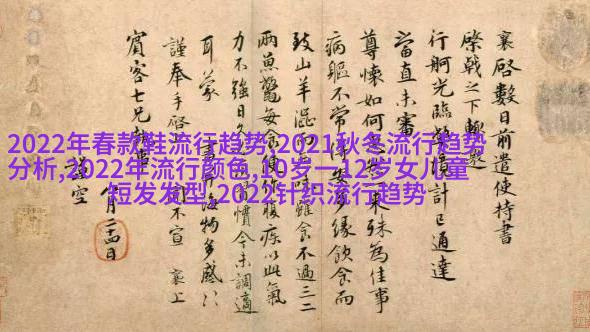 2022年春款鞋流行趋势,2021秋冬流行趋势
分析,2022年流行颜色,10岁一12岁女儿童
短发发型,2022针织流行趋势
襄啓數日前遣使持書
棨戟之下
行舸光臨郡境計已通達
當直未審
尊懷如何 來殊為佳事
病軀不常 多緣飲食而
致山羊 雖食不過三二
兩魚鱉每食 腹疾以此氣
力不強日久 習慣今未調適
耳蒙 海物多感
謹奉手啓 不宣 襄上
賓客七兄
謹空 月二十四日